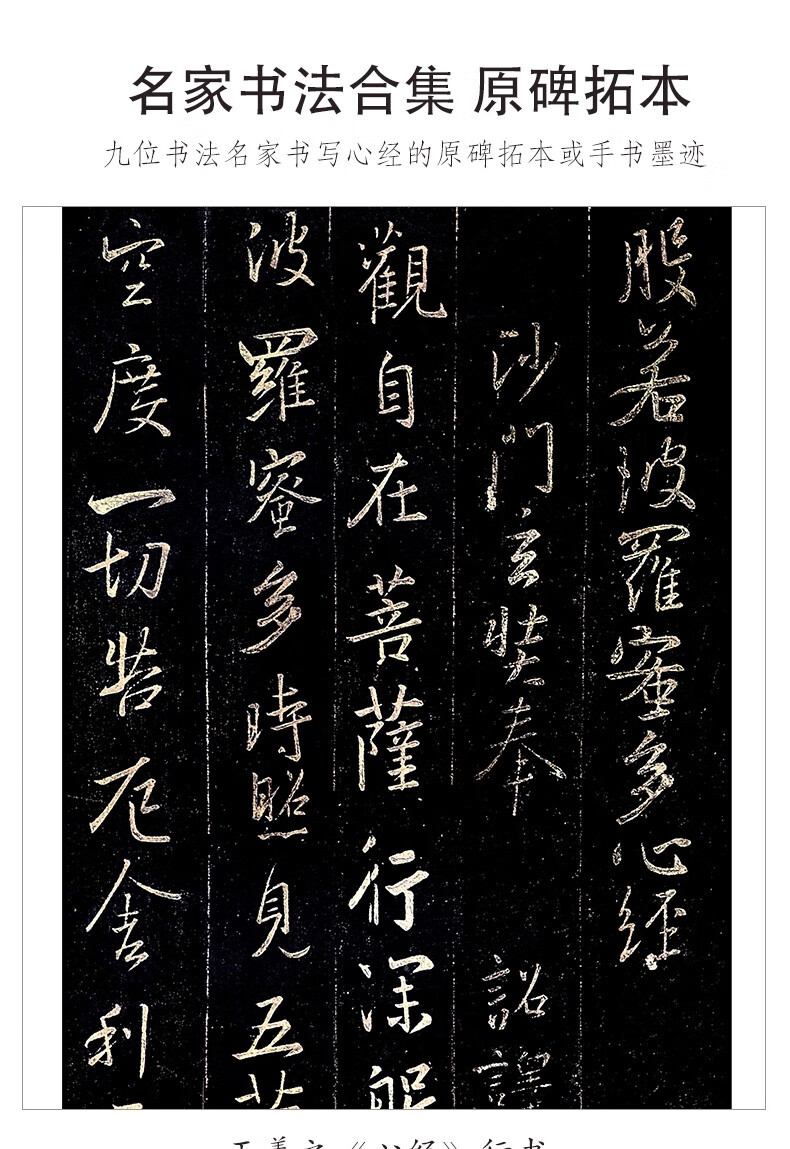 名家书法合集 原碑拓本
九位书法名家书写心经的原碑拓本或手书墨迹
般若波羅蜜多心經
沙門玄奘奉 詔譯
觀自在菩薩行深般
波羅蜜多時照見五
空度一切苦厄舍利
王羲之《心经》行书